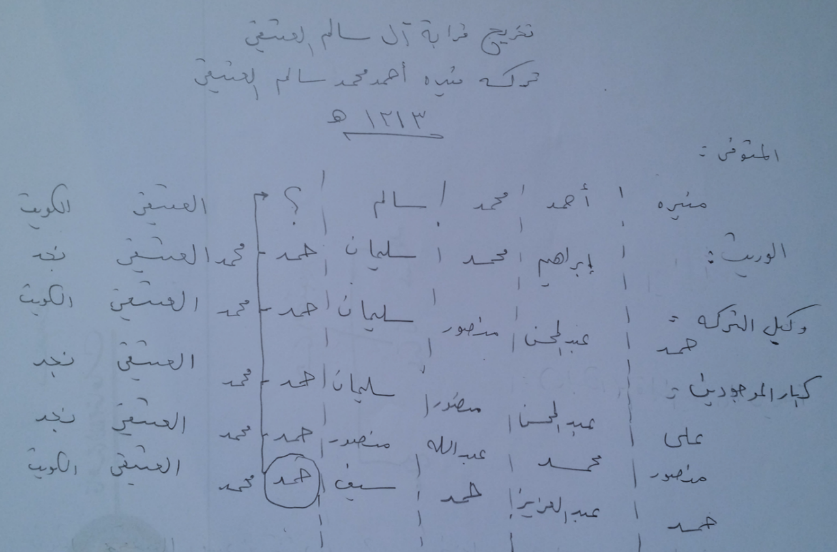 تخريج قرابة آل سالم العتيقي
تركه منيره أحمد محمد سالم العتيقي
١٢١٣ هـ
المتوفى :
منيره أحمد محمد سالم ؟ العتيقي الكويت
الوريث :
إبراهيم محمد سليمان حمد - محمد العتيقي نجد
وكيل التركه :
حمد عبدالمحسن منصور سليمان حمد - محمد العتيقي الكويت
كبار الموجودين :
علي عبدالمحسن منصور سليمان حمد - محمد العتيقي نجد
منصور محمد عبدالله منصور حمد - محمد العتيقي نجد
حمد عبدالعزيز حمد سيف حمد محمد العتيقي الكويت